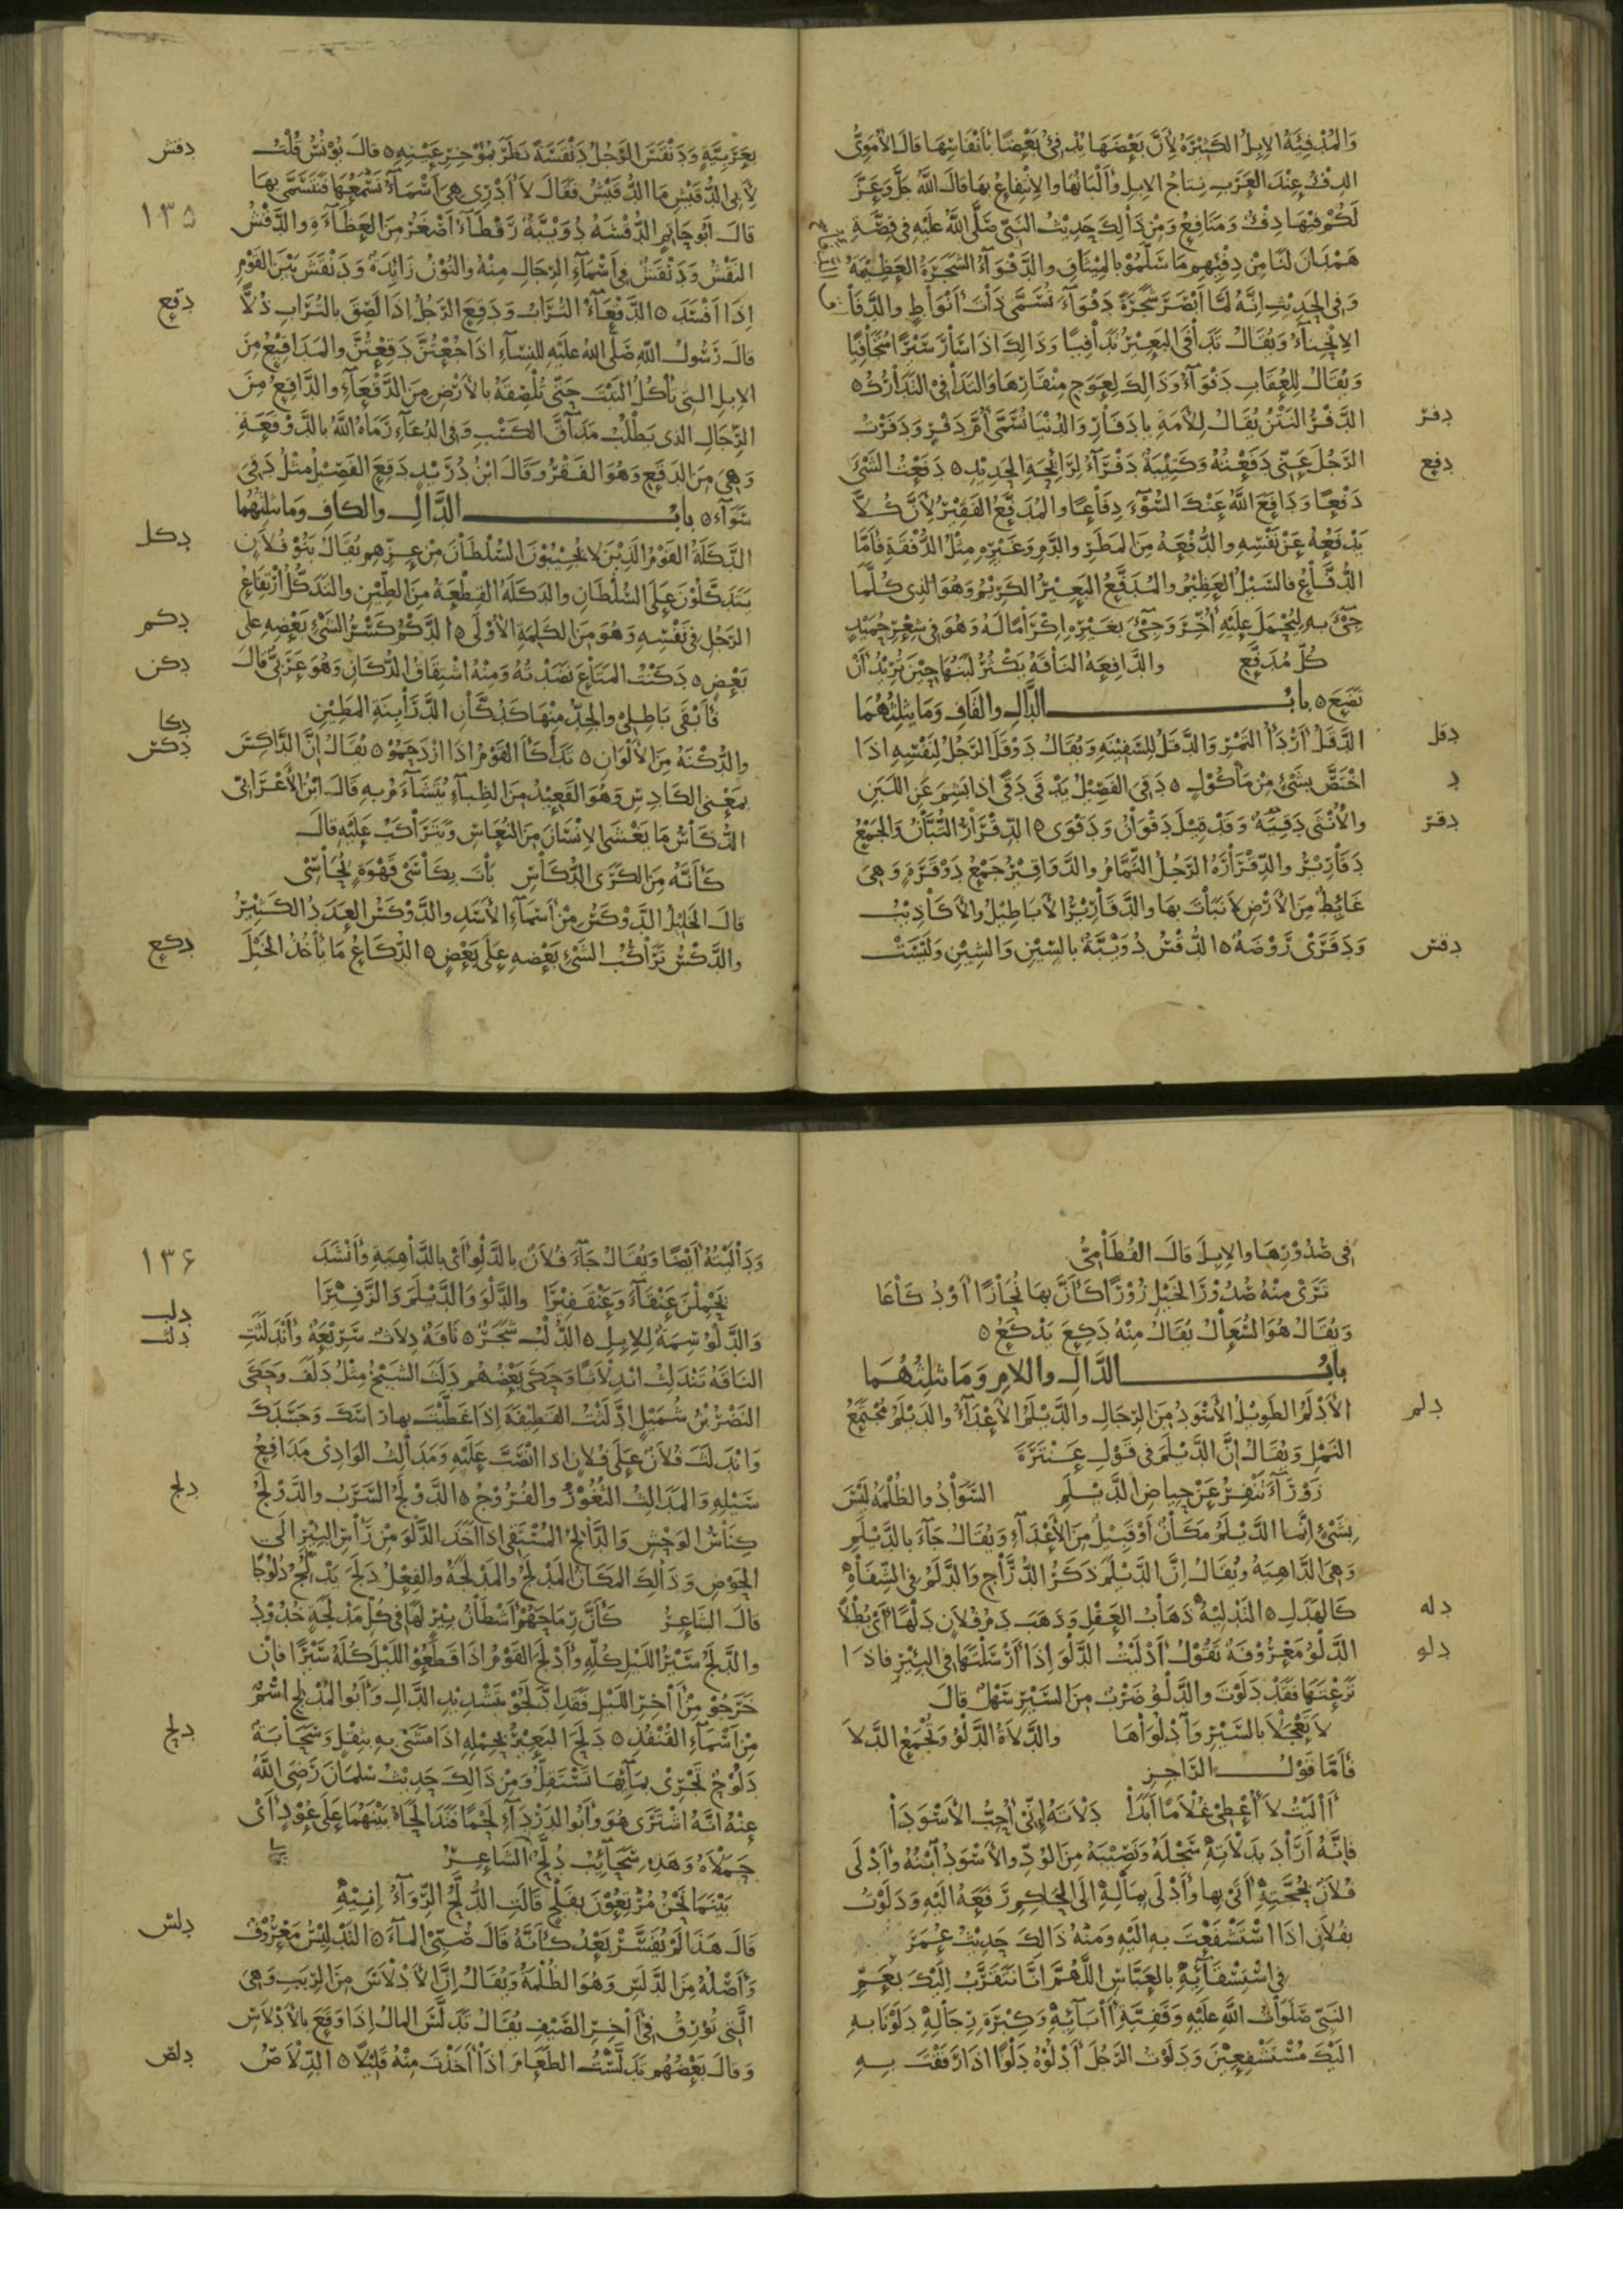 وَالْمُدْفِئَةُ الإبِلُ الكَثِيرَةُ لِأَنَّ بَعْضَهَا يُدْفِئُ بَعْضًا بِأَنْفَاسِهَا قَالَ الأُمَوِيُّ
الدِّفْءُ عِنْدَ العَرَبِ نِتَاجُ الإبِلِ وَأَلْبَانُهَا وَالاِنْتِفَاعُ بِهَا قَالَ اللَّهُ جَلَّ وَعَزَّ
لَكُمْ فِيهَا دِفْءٌ وَمَنَافِعُ وَمِنْ ذَالِكَ حَدِيثُ النَّبِيِّ صَلَّى اللَّهُ عَلَيْهِ فِي قِصَّةِ
هَمْدَانَ لَنَا مِنْ دِفْئِهِم مَا سَلَّمُوْا بِالْمِيْثَاقِ وَالدَّفْوَآءُ الشَّجَرَةُ العَظِيمَةُ
وَفِي الْحَدِيثِ إِنَّهُ لَمَّا أَبْصَرَ شَجَرَةً دَفْوَآءَ تُسَمَّى ذَاتَ أَنْوَاطٍ وَالدَّفَا
الاِنْحِنَاءُ وَيُقَالُ تَدَافَى البَعِيْرُ تَدَافِيًا وَذَالِكَ اذَا سَارَ سَيْرًا مُتَجَافِيًا
وَيُقَالُ لِلعُقَابِ دَفْوَآءُ وَذَالِكَ لِعَوَجِ مِنْقَارِهَا وَالتَّدَافِي التَّدَارُكُ ٥
دفر الدَّفْرُ النَّتْنُ يُقَالُ لِلْأَمَةِ يَا دَفَارِ وَالدُّنْيَا تُسَمَّى أُمَّ دَفْرٍ وَدَفَرْتُ
دفع الرَّجُلَ عَنِّي دَفَعْتُهُ وَكَتِيْبَةٌ دَفْرَآءُ لِرَائِحَةِ الْحَدِيْدِ ٥ دَفَعْتُ الشَّئَ
دَفْعًا وَدَافَعَ اللَّهُ عَنْكَ السُّوْءَ دِفَاعًا وَالْمُدَفَّعُ الفَقِيْرُ لِأَنَّ كُلًّا
يَدْفَعُهُ عَنْ نَفْسِهِ وَالدُّفْعَةُ مِنَ المَطَرِ وَالدَّمِ وَغَيْرِهِ مِثْلُ الدُّفْقَةِ فَأَمَّا
الدُّفَّاعُ فَالسَّيْلُ العَظِيْمُ وَالْمُدَفَّعُ البَعِيْرُ الكَرِيْمُ وَهُوَ الذِي كُلَّمَا
جِئَ بِهِ لِيُحْمَلَ عَلَيْهِ أُخِّرَ وَجِئَ بِغَيْرِهِ إِكْرَامًا لَهُ وَهُوَ فِي شِعْرِ حُمَيْدٍ
كُلُّ مُدَفَّعٍ وَالدَّافِعَةُ النَّاقَةُ يَكْثُرُ لَبَنُهَا حِيْنَ تُرِيْدُ أَنْ
تَضَعَ ٥ بابُ الدَّالِ والقَافِ وَمَا يثلِثُهُمَا
دقل الدَّقَلُ أَرْدَأُ التَّمْرِ وَالدَّقَلُ لِلسَّفِيْنَةِ وَيُقَالُ دَوْقَلَ الرَّجُلُ لِنَفْسِهِ اذَا
د اخْتَصَّ بِشَئٍ مِنْ مَأْكُولٍ ٥ دَقِيَ الفَصِيْلُ يَدْقَى دَقًى اذا بَشِمَ عَنِ اللَّبَنِ
دقر والأُنْثَى دَقِيَّةٌ وَقَدْ قِيْلَ دَقْوَانُ وَدَقْوَى ٥ الدِّقْرَارُ التُّبَّانُ وَالجَمْعُ
دَقَارِيْرُ والدِّقْرَارَةُ الرَّجُلُ النَّمَّامُ والدَّوَاقِيْرُ جَمْعُ دَوْقَرَةٍ وَهِيَ
غَائِطٌ مِنَ الأَرْضِ لاَ نَبَاتَ بِهَا وَالدَّقَارِيْرُ الأَبَاطِيْلُ وَالأَكَاذِيْبُ
دقش وَدَقَرَى رَوْضَةٌ ٥ الدُّقْشُ دُوَيْبَّةٌ بالسِّيْنِ وَالشِّيْنِ وَلَيْسَتْ
دفش بِعَرَبِيَّةٍ وَدَنْقَشَ الرَّجُلُ دَنْقَشَةً نَظَرَ بِمُؤْخِرِ عَيْنِهِ ٥ قالَ يُوْنُسُ قُلْتُ
لِأَبِي الدُّقَيْشِ مَا الدُّقَيْشُ فَقَالَ لاَ أَدْرِي هِيَ أَسْمَآءٌ نَسْمَعُهَا فَنَتَسَمَّى بِهَا
١٣٥ قالَ أَبُو حَاتِمٍ الدُّقْشَةُ دُوَيْبَّةٌ رَقْطَآءُ أَصْغَرُ مِنَ العَظَآءَةِ والدَّقْشُ
النَّقْشُ وَدَنْقَشٌ فِي أَسْمَآءِ الرِّجَالِ مِنْهُ وَالنُّوْنُ زَائِدَةٌ وَدَنْقَشَ بَيْنَ القَوْمِ
دقع إذَا أَفْسَدَ ٥ الدَّقْعَآءُ التُّرَابُ وَدَقِعَ الرَّجُلُ اذَا لَصِقَ بِالتُّرَابِ ذُلًّا
قالَ رَسُولُ اللَّهِ صَلَّى اللَّهُ عَلَيْهِ لِلنِّسَآءِ اذَا جُعْتُنَّ دَقِعْتُنَّ والمَدَاقِيْعُ مِنَ
الإبِلِ التِي تَأْكُلُ النَّبْتَ حَتَّى تُلْصِقَهُ بِالأَرْضِ مِنَ الدَّقْعَآءِ والدَّاقِعُ مِنَ
الرِّجَالِ الذي يَطْلُبُ مَدَاقَّ الكَسْبِ وَفِي الدُّعَآءِ رَمَاهُ اللَّهُ بِالدَّوْقَعَةِ
وَهِيَ مِنَ الدَّقَعِ وَهُوَ الفَقْرُ وَقَالَ ابْنُ دُرَيْدٍ دَقِعَ الفَصِيْلُ مِثْلُ دَقِيَ
سَوَآء ٥ بابُ الدَّالِ والكافِ وَمَا يثلِثُهُمَا
دكل الدَّكَلَةُ القَوْمُ الَّذِيْنَ لاَ يُجِيْبُوْنَ السُّلْطَانَ مِنْ عِزِّهِم يُقَالُ بَنُوْ فُلاَنٍ
يَتَدَكَّلُوْنَ عَلَى السُّلْطَانِ والدَكَلَةُ القِطْعَةُ مِنَ الطِّيْنِ والتَدَكُّلُ ارْتِفَاعُ
دكم الرَّجُلِ فِي نَفْسِهِ وَهُوَ مِنَ الكَلِمَةِ الأُوْلَى ٥ الدَّكْمُ كَسْرُ الشَّئِ بَعْضِهِ عَلَى
دكن بَعْضٍ ٥ دَكَنْتُ المَتَاعَ نَضَدْتُهُ وَمِنْهُ اشْتِقَاقُ الدُّكَّانِ وَهُوَ عَرَبِيٌّ قَالَ
فَأَبْقَى بَاطِلِي وَالجِدُّ مِنْهَا كَدُكَّانِ الدَّرَابِنَةِ المَطِيْنِ
دكا والدُّكْنَةُ مِنَ الأَلْوَانِ ٥ تَدَاكَأَ القَوْمُ اذَا ازْدَحَمُوْا ٥ يُقَالُ إِنَّ الدَّاكِسَ
دكس بِمَعْنَى الكَادِسِ وَهُوَ القَعِيْدُ مِنَ الظِّبَآءِ يُتَشَاءَمُ بِهِ قَالَ ابْنُ الأَعْرَابِيِّ
الدُّكَاسُ مَا يَغْشَى الإِنْسَانَ مِنَ النُّعَاسِ وَيَتَرَاكَبُ عَلَيْهِ قَالَ
كَأَنَّهُ مِنَ الكَرَى الدُّكَاسِ بَاتَ بِكَأْسَيْ قَهْوَةٍ يُحَاسِي
قالَ الخَلِيْلُ الدَّوْكَسُ مِنْ أَسْمَآءِ الأَسَدِ والدَّوْكَسُ العَدَدُ الكَثِيْرُ
دكع والدَّكْسُ تَرَاكُبُ الشَّئِ بَعْضِهِ عَلَى بَعْضٍ ٥ الدُّكَاعُ مَا يَأْخُذُ الخَيْلَ
فِي صُدُوْرِهَا وَالإِبِلَ قَالَ القُطَامِيُّ
تَرَى مِنْهُ صُدُوْرَ الخَيْلِ زُوْرًا كَأَنَّ بِهَا نُحَازًا أَوْ دُكَاعَا
وَيُقَالُ هُوَ السُّعَالُ يُقَالُ مِنْهُ دَكِعَ يَدْكَعُ ٥
بابُ الدَّالِ واللامِ وَمَا يثلِثُهُمَا
دلم الأَدْلَمُ الطَوِيْلُ الأَسْوَدُ مِنَ الرِّجَالِ والدَّيْلَمُ الأَعْدَآءُ والدَيْلَمُ مُجْتَمَعُ
النَّمْلِ وَيُقَالُ إِنَّ الدَّيْلَمَ فِي قَوْلِ عَنْتَرَةَ
زَوْرَآءَ تَنْفِرُ عَنْ حِيَاضِ الدَّيْلَمِ السَّوَادُ وَالظُّلْمَةُ لَيْسَ
بِشَيْءٍ إِنَّمَا الدَّيْلَمُ مَكَانٌ أَوْ قَبِيْلٌ مِنَ الأَعْدَآءِ وَيُقَالُ جَآءَ بِالدَّيْلَمِ
وَهِيَ الدَّاهِيَةُ وَيُقَالُ إِنَّ الدَّيْلَمَ ذَكَرُ الدُّرَّاجِ وَالدَّلَمُ فِي الشِّفَاهِ
دله كَالهَدَلِ ٥ التَدْلِيْهُ ذَهَابُ العَقْلِ وَذَهَبَ دَمُ فُلاَنٍ دَلْهًا أَيْ بُطْلاً
دلو الدَّلْوُ مَعْرُوْفَةٌ تَقُوْلُ أَدْلَيْتُ الدَّلْوَ إِذَا أَرْسَلْتَهَا فِي البِئْرِ فَاذَا
نَزَعْتَهَا فَقَدْ دَلَوْتَ والدَّلْوُ ضَرْبٌ مِنَ السَّيْرِ سَهْلٌ قَالَ
لاَ تَعْجَلاَ بِالسَّيْرِ وَادْلُوَاهَا والدَّلاَةُ الدَّلْوُ وَتُجْمَعُ الدَّلاَ
فَأَمَّا قَوْلُ الرَّاجِزِ
آلَيْتُ لاَ أُعْطِي غُلاَمًا أَبَدًا دَلاَتَهُ إِنِّي أُحِبُّ الأَسْوَدَا
فَإِنَّهُ أَرَادَ بِدَلاَتِهِ سَجْلَهُ وَنَصِيْبَهُ مِنَ الوُدِّ وَالأَسْوَدُ ابْنُهُ وَأَدْلَى
فُلاَنٌ بِحُجَّتِهِ أَتَى بِهَا وَأَدْلَى بِمَالِهِ إِلَى الحَاكِمِ رَفَعَهُ الَيْهِ وَدَلَوْتُ
بِفُلاَنٍ اذَا اسْتَشْفَعْتَ بِهِ الَيْهِ وَمِنْهُ ذَالِكَ حَدِيْثُ عُمَرَ
فِي اسْتِسْقَآئِهِ بِالعَبَّاسِ اللَّهُمَّ إِنَّا نَتَقَرَّبُ إِلَيْكَ بِعَمِّ
النَبِيِّ صَلَوَاتُ اللَّهِ عَلَيْهِ وَقَفِيَّةِ آبَآئِهِ وَكِبَرَةِ رِجَالِهِ دَلَوْنَا بِهِ
الَيْكَ مُسْتَشْفِعِيْنَ وَدَلَوْتُ الرَّجُلَ أَدْلُوْهُ دَلْوًا اذَا رَفَقْتَ بِهِ
وَدَالَيْتُهُ أَيْضًا وَيُقَالُ جَآءَ فُلاَنٌ بِالدَّلْوِ أَيْ بِالدَّاهِيَةِ وَأَنْشَدَ
١٣٦ يَحْمِلْنَ عَنْقَآءَ وَعَنْقَفِيْرَا وَالدَّلْوَ وَالدَّيْلَمَ وَالزَّفِيْرَا
دلب وَالدَّلْوُ سِمَةٌ لِلإِبِلِ ٥ الدُّلْبُ شَجَرٌ ٥ نَاقَةٌ دِلاَثٌ سَرِيْعَةٌ وَانْدَلَثَتِ
دلث النَّاقَةُ تَنْدَلِثُ انْدِلاَثًا وَحَكَى بَعْضُهُم دَلَثَ الشَّيْخُ مِثْلُ دَلَفَ وَحَكَى
النَّضْرُ بْنُ شُمَيْلٍ ادَّلَثْتُ القَطِيْفَةَ إِذَا غَطَّيْتَ بِهَا رَاسَكَ وَجَسَدَكَ
وَانْدَلَثَ فُلاَنٌ عَلَى فُلاَنٍ اذا انْصَبَّ عَلَيْهِ وَمَدَالِثُ الوَادِي مَدَافِعُ
دلج سَيْلِهِ وَالمَدَالِثُ الثُّغُوْرُ وَالفُرُوْجُ ٥ الدَّوْلَجُ السَّرَبُ وَالدَّوْلَجُ
كِنَاسُ الوَحْشِ وَالدَّالِجُ المُسْتَقِي اذَا أَخَذَ الدَّلْوَ مِنْ رَأْسِ البِئْرِ إِلَى
الحَوْضِ وَذَالِكَ المَكَانُ المَدْلَجُ وَالمَدْلَجَةُ وَالفِعْلُ دَلَجَ يَدْلِجُ دُلُوْجًا
قَالَ الشَّاعِرُ كَأَنَّ رِمَاحَهُمْ أَشْطَانُ بِئْرٍ لَهَا فِي كُلِّ مَدْلَجَةٍ خُدُوْدُ
والدَّلَجُ سَيْرُ اللَّيْلِ كُلِّهِ وَأَدْلَجَ القَوْمُ اذَا قَطَعُوْا اللَّيْلَ كُلَّهُ سَيْرًا فَإِنْ
خَرَجُوْا مِنْ آخِرِ اللَيْلِ فَقَدِ ادَّلَجُوْا بِتَشْدِيْدِ الدَّالِ وَأَبُو المُدْلِجِ اسْمٌ
دلح مِنْ أَسْمَآءِ القُنْفُذِ ٥ دَلَحَ البَعِيْرُ بِحِمْلِهِ اذَا مَشَى بِهِ بِثِقْلٍ وَسَحَابَةٌ
دَلُوْحٌ تَجْرِي بِمَآئِهَا تَسْتَقِلُّ وَمِنْ ذَالِكَ حَدِيْثُ سَلْمَانَ رَضِيَ اللَّهُ
عَنْهُ انَّهُ اشْتَرَى هُوَ وَأَبُو الدَّرْدَآءِ لَحْمًا فَتَدَالَحَاهُ بَيْنَهُمَا عَلَى عُوْدٍ أَيْ
حَمَلاَهُ وَهَذِهِ سَحَائِبُ دُلَّحٌ الشَّاعِرُ
بَيْنَمَا نَحْنُ مُرْتَعُوْنَ بِفَلْجٍ قَالَتِ الدُّلَّحُ الرِّوَآءُ إِنِيْهِ
دلس قَالَ هَذَا لَمْ يُفَسَّرْ بَعْدُ كَأَنَّهُ قَالَ صُبِّي المآءَ ٥ التَدْلِيْسُ مَعْرُوْفٌ
وَأَصْلُهُ مِنَ الدَّلَسِ وَهُوَ الظُلْمَةُ وَيُقَالُ إِنَّ الأَدْلاَسَ مِنَ الرِّبَبِ وَهِيَ
الَّتِي تُوْرِقُ فِي آخِرِ الصَّيْفِ يُقَالُ تَدَلَّسَ المَالُ إِذَا وَقَعَ بِالأَدْلاَسِ
دلص وَقَالَ بَعْضُهُم تَدَلَّسْتُ الطَعَامَ اذَا أَخَذْتَ مِنْهُ قَلِيْلاً ٥ الدِّلاَصُ